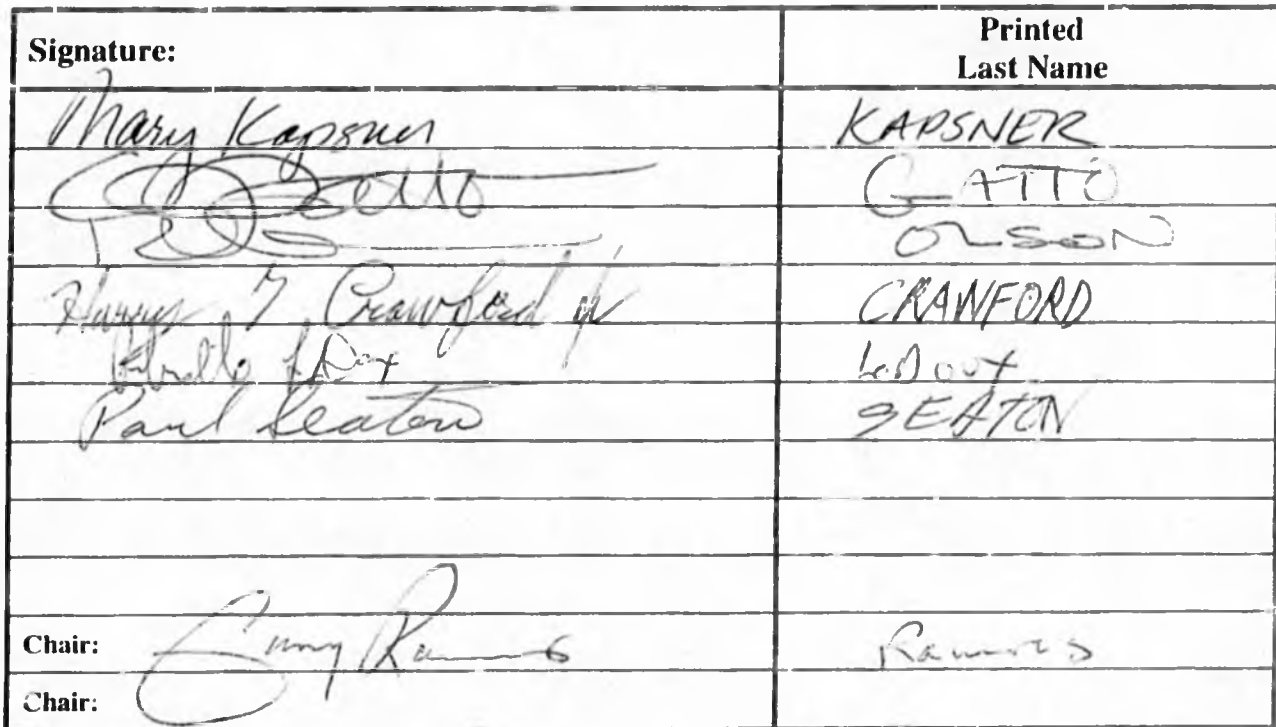 Signature: Printed Last Name
Mary Kapsner KAPSNER
GATTO
OLSON
Harry T Crawford Jr CRAWFORD
Paul Seaton SEATON
Chair:
Chair: